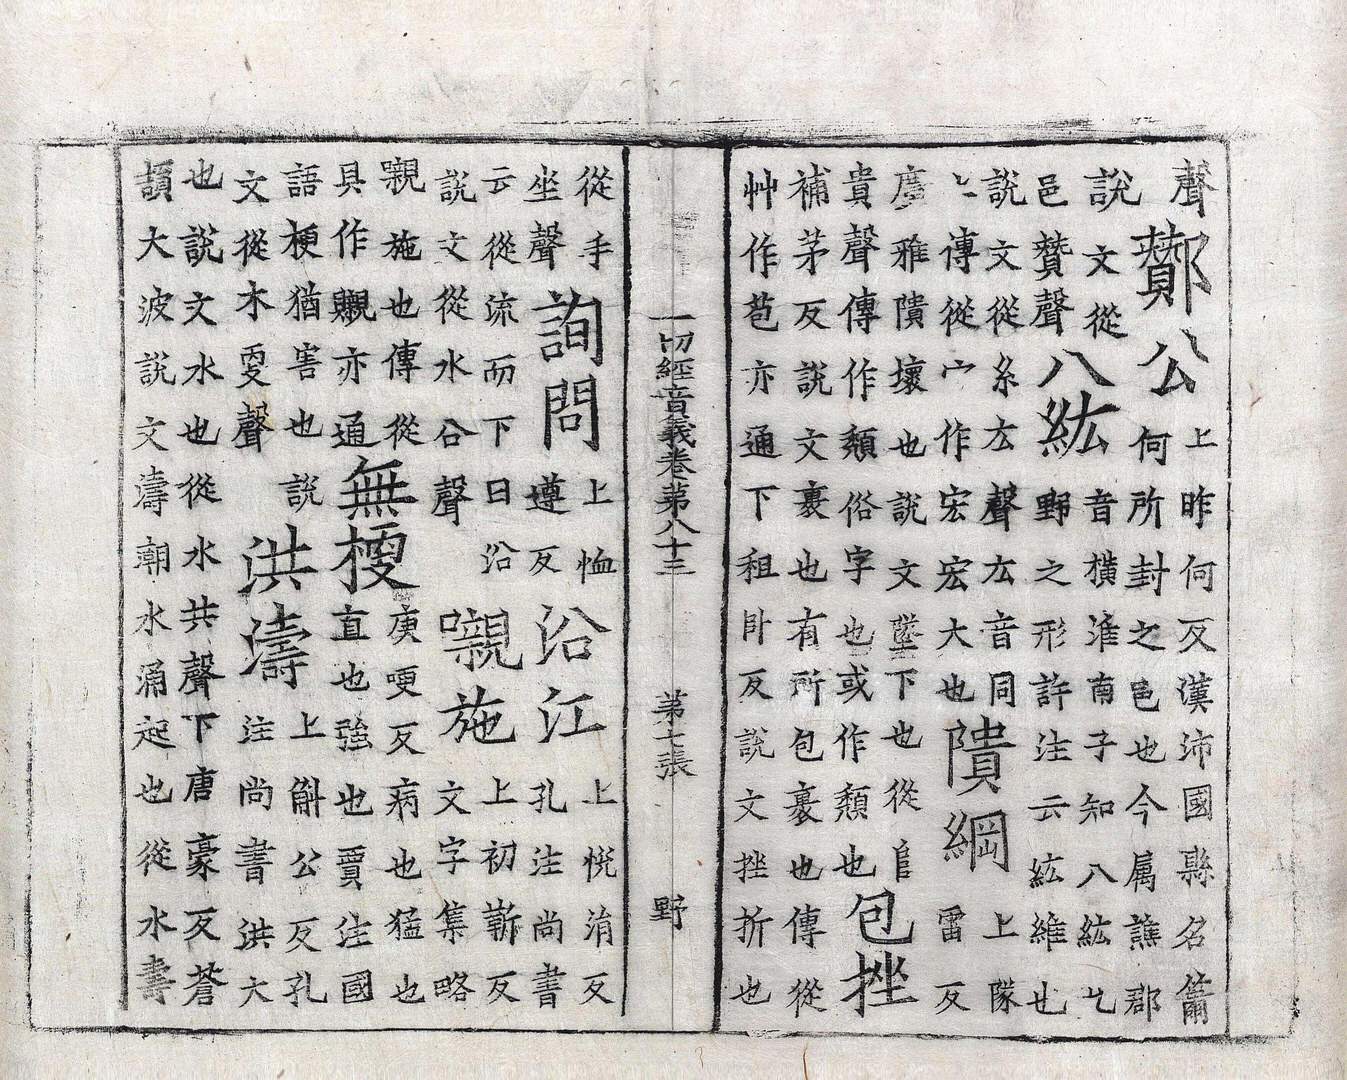 聲
酇公
上昨何反漢沛國縣名簫
何所封之邑也今属譙郡
說文從
邑贊聲
八紘
音橫淮南子知八紘乜
野之形許注云紘維也
說文從糸厷聲厷音同
〻傳從宀作宏宏大也
隤綱
上隊
雷反
廣雅隤壞也說文墜下也從𨸏
貴聲傳作頽俗字也或作頽也
包挫
補茅反說文裹也有所包裹也傳從
艸作苞亦通下租卧反說文挫折也
一切經音義卷第八十三 第十張 野
從手
坐聲
詢問
上恤
遵反
沿江
上悅涓反
孔注尚書
云從流而下曰沿
說文從水㕣聲
嚫施
上初嶄反
文字集略
嚫施也傳從
具作䞋亦通
無梗
庚哽反病也猛也
直也強也賈注國
語梗猶害也說
文從木㪅聲
洪濤
上斛公反孔
注尚書洪大
也說文水也從水共聲下唐豪反蒼
頡大波說文濤潮水涌起也從水壽